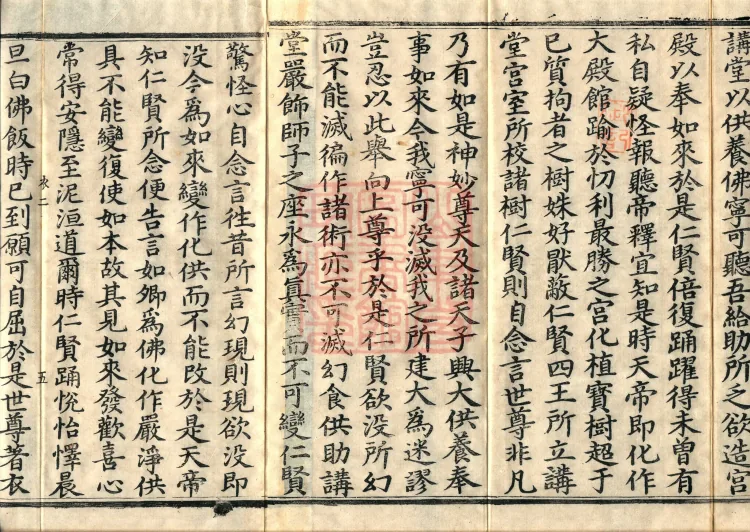 講堂以供養佛寧可聽吾給助所乏欲造宮
殿以奉如來於是仁賢倍復踊躍得未曾有
私自疑怪報聽帝釋宜知是時天帝即化作
大殿館踰於忉利最勝之宮化植寶樹超于
巳質拘耆之樹姝好猒敝仁賢四王所立講
堂宮室所校諸樹仁賢則自念言世尊非凡
乃有如是神妙尊天及諸天子興大供養奉
事如來今我寧可没滅我之所建大為迷謬
豈忍以此舉向上尊乎於是仁賢欲没所幻
而不能滅徧作諸術亦不可滅幻食供助講
堂嚴飾師子之座永為真實而不可變仁賢
驚怪心自念言往昔所言幻現則現欲没即
没今為如來變作化供而不能改於是天帝
知仁賢所念便告言如卿為佛化作嚴淨供
具不能變復使如本故其見如來發歡喜心
常得安隱至泥洹道爾時仁賢踊悅怡懌晨
衣二
五
旦白佛飯時巳到願可自屈於是世尊著衣